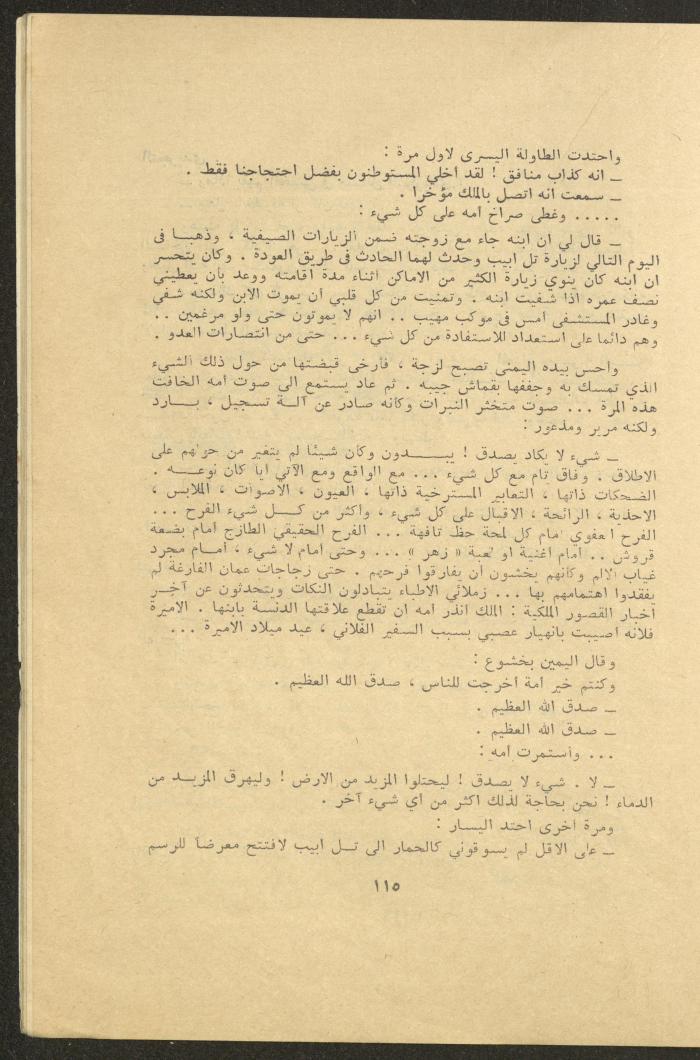 واحتدت الطاولة اليسرى لاول مرة :
ـ انه كذاب منافق ! لقد اخلي المستوطنون بفضل احتجاجنا فقط .
ـ سمعت انه اتصل بالملك مؤخرا .
..... وغطى صراخ امه على كل شيء :
ـ قال لي ان ابنه جاء مع زوجته ضمن الزيارات الصيفية ، وذهبا فى
اليوم التالي لزيارة تل ابيب وحدث لهما الحادث فى طريق العودة . وكان يتحسر
ان ابنه كان ينوي زيارة الكثير من الاماكن اثناء مدة اقامته ووعد بأن يعطيني
نصف عمره اذا شفيت ابنه . وتمنيت من كل قلبي ان يموت الابن ولكنه شفي
وغادر المستشفى امس فى موكب مهيب .. انهم لا يموتون حتى ولو مرغمين ..
وهم دائما على استعداد للاستفادة من كل شيء ... حتى من انتصارات العدو .
واحس بيده اليمنى تصبح لزجة ، فأرخى قبضتها من حول ذلك الشيء
الذي تمسك به وجففها بقماش جيبه . ثم عاد يستمع الى صوت امه الخافت
هذه المرة ... صوت متخثر النبرات وكأنه صادر عن آلة تسجيل ، بارد
ولكنه مرير ومذعور :
ـ شيء لا يكاد يصدق ! يبدون وكأن شيئا لم يتغير من حولهم على
الاطلاق . وفاق تام مع كل شيء ... مع الواقع ومع الآتي ايا كان نوعه .
الضحكات ذاتها ، التعابير المسترخية ذاتها ، العيون ، الاصوات ، الملابس ،
الاحذية ، الرائحة ، الاقبال على كل شيء ، واكثر من كل شيء الفرح ...
الفرح العفوي امام كل لمحة حظ تافهة ... الفرح الحقيقي الطازج امام بضعة
قروش .. امام اغنية او لعبة « زهر » ... وحتى امام لا شيء ، امام مجرد
غياب الالم وكأنهم يخشون ان يفارقوا فرحهم . حتى زجاجات عمان الفارغة لم
يفقدوا اهتمامهم بها ... زملائي الاطباء يتبادلون النكات ويتحدثون عن آخر
اخبار القصور الملكية : الملك انذر امه ان تقطع علاقتها الدنسة بابنها . الاميرة
فلانه اصيبت بانهيار عصبي بسبب السفير الفلاني ، عيد ميلاد الاميرة ...
وقال اليمين بخشوع :
وكنتم خير امة اخرجت للناس ، صدق الله العظيم .
ـ صدق الله العظيم .
ـ صدق الله العظيم .
... واستمرت امه :
ـ لا . شيء لا يصدق ! ليحتلوا المزيد من الارض ! وليهرق المزيد من
الدماء ! نحن بحاجة لذلك اكثر من اي شيء آخر .
ومرة اخرى احتد اليسار :
ـ على الاقل لم يسوقوني كالحمار الى تل ابيب لافتتح معرضاً للرسم
١١٥